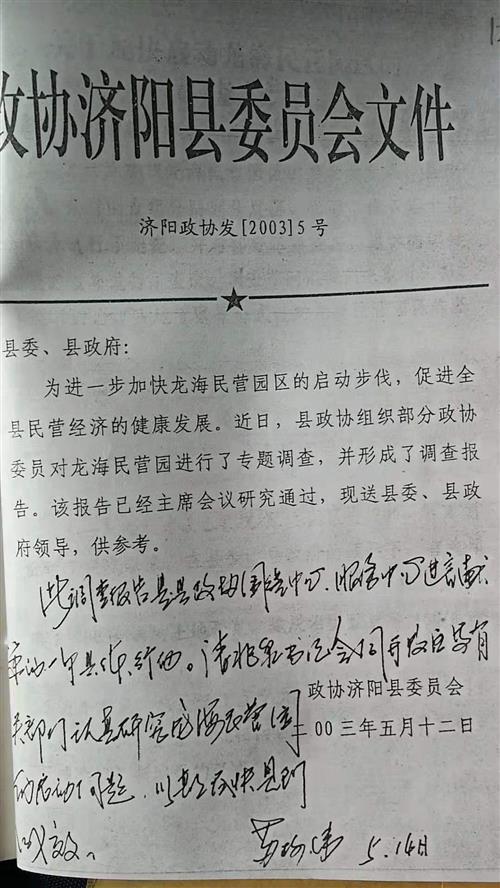 政协济阳县委员会文件
济阳政协发[2003]5号
县委、县政府:
为进一步加快龙海民营园区的启动步伐，促进全
县民营经济的健康发展。近日，县政协组织部分政协
委员对龙海民营园进行了专题调查，并形成了调查报
告。该报告已经主席会议研究通过，现送县委、县政
府领导，供参考。
此调查报告是县政协围绕中心、服务中心进言献
策的一个具体行动。请
会同开发区及有
政协济阳县委员会
关部门认真研究龙海民营园
00三年五月十二日
的启动问题，以
尽快见到
成效。
5.14日